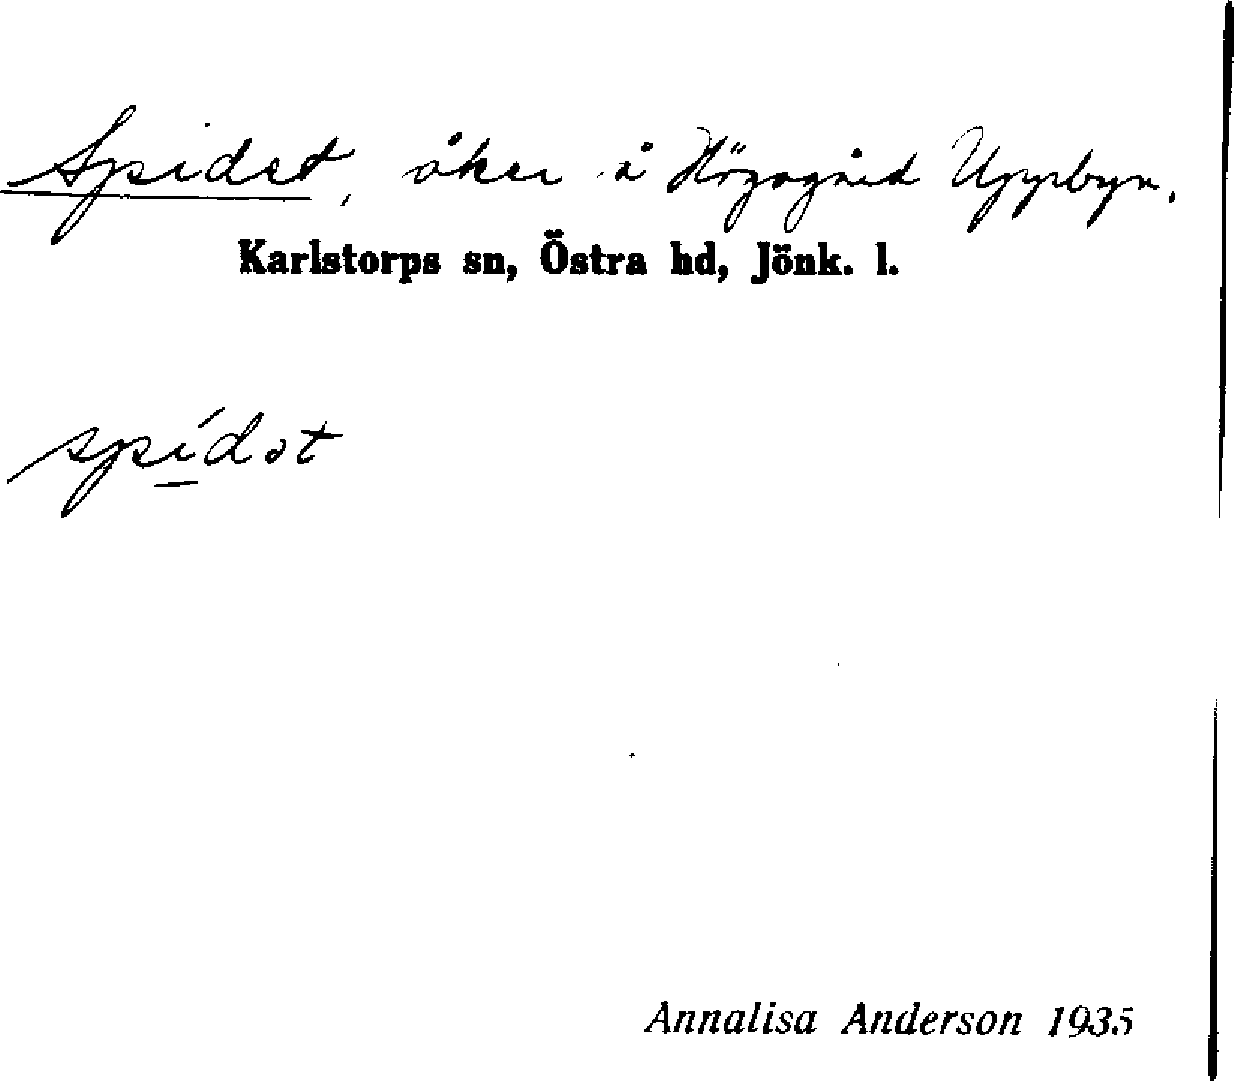 Spidet, åker å Högagärd Uppbyn.
Karlstorps sn, Östra hd, Jönk. l.
spídət
Annalisa Anderson 1935